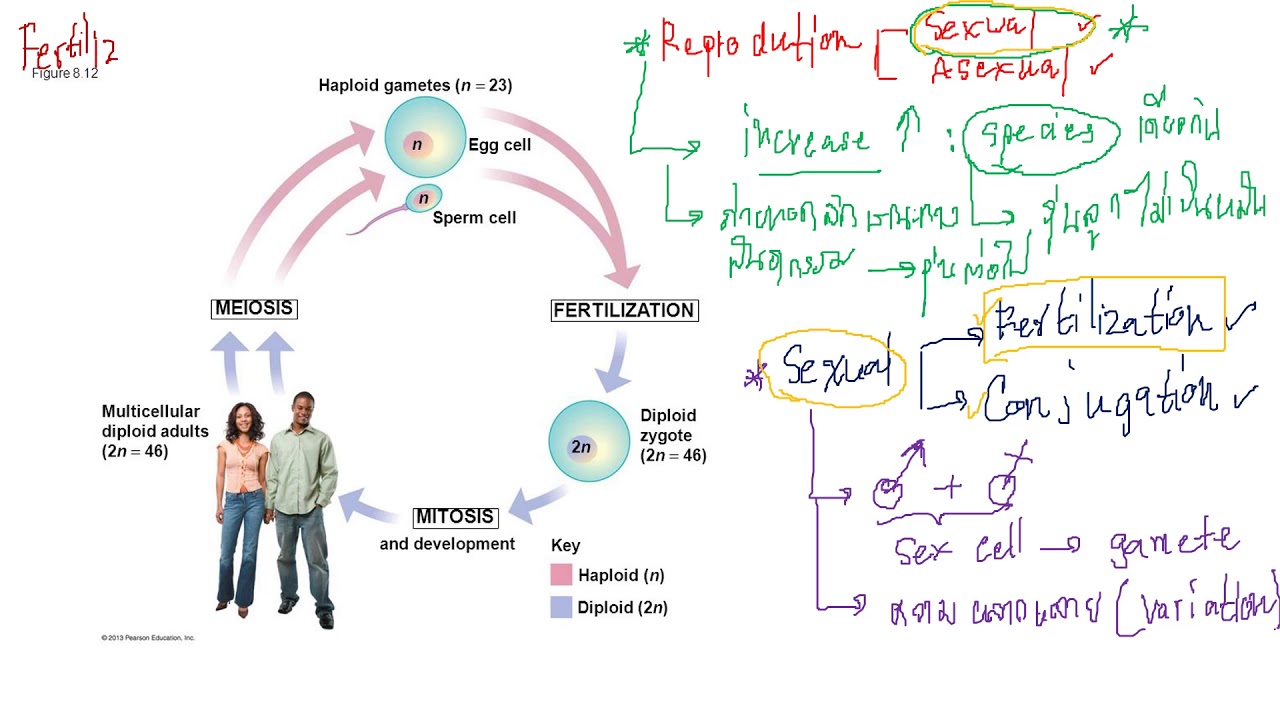 Fertiliz
Figure 8.12
Haploid gametes (n = 23)
n
Egg cell
n
Sperm cell
MEIOSIS
FERTILIZATION
Multicellular
diploid adults
(2n = 46)
2n
Diploid
zygote
(2n = 46)
MITOSIS
and development
Key
Haploid (n)
Diploid (2n)
© 2013 Pearson Education, Inc.
* Reproduction Sexual ✓ *
Asexual ✓
increase ↑ : species เดียวกัน
→ รุ่นลูก
พันธุกรรม →
* Sexual
→ Fertilization ✓
→ Conjugation ✓
→ ♂ + ♀
sex cell → gamete
→ (variation)